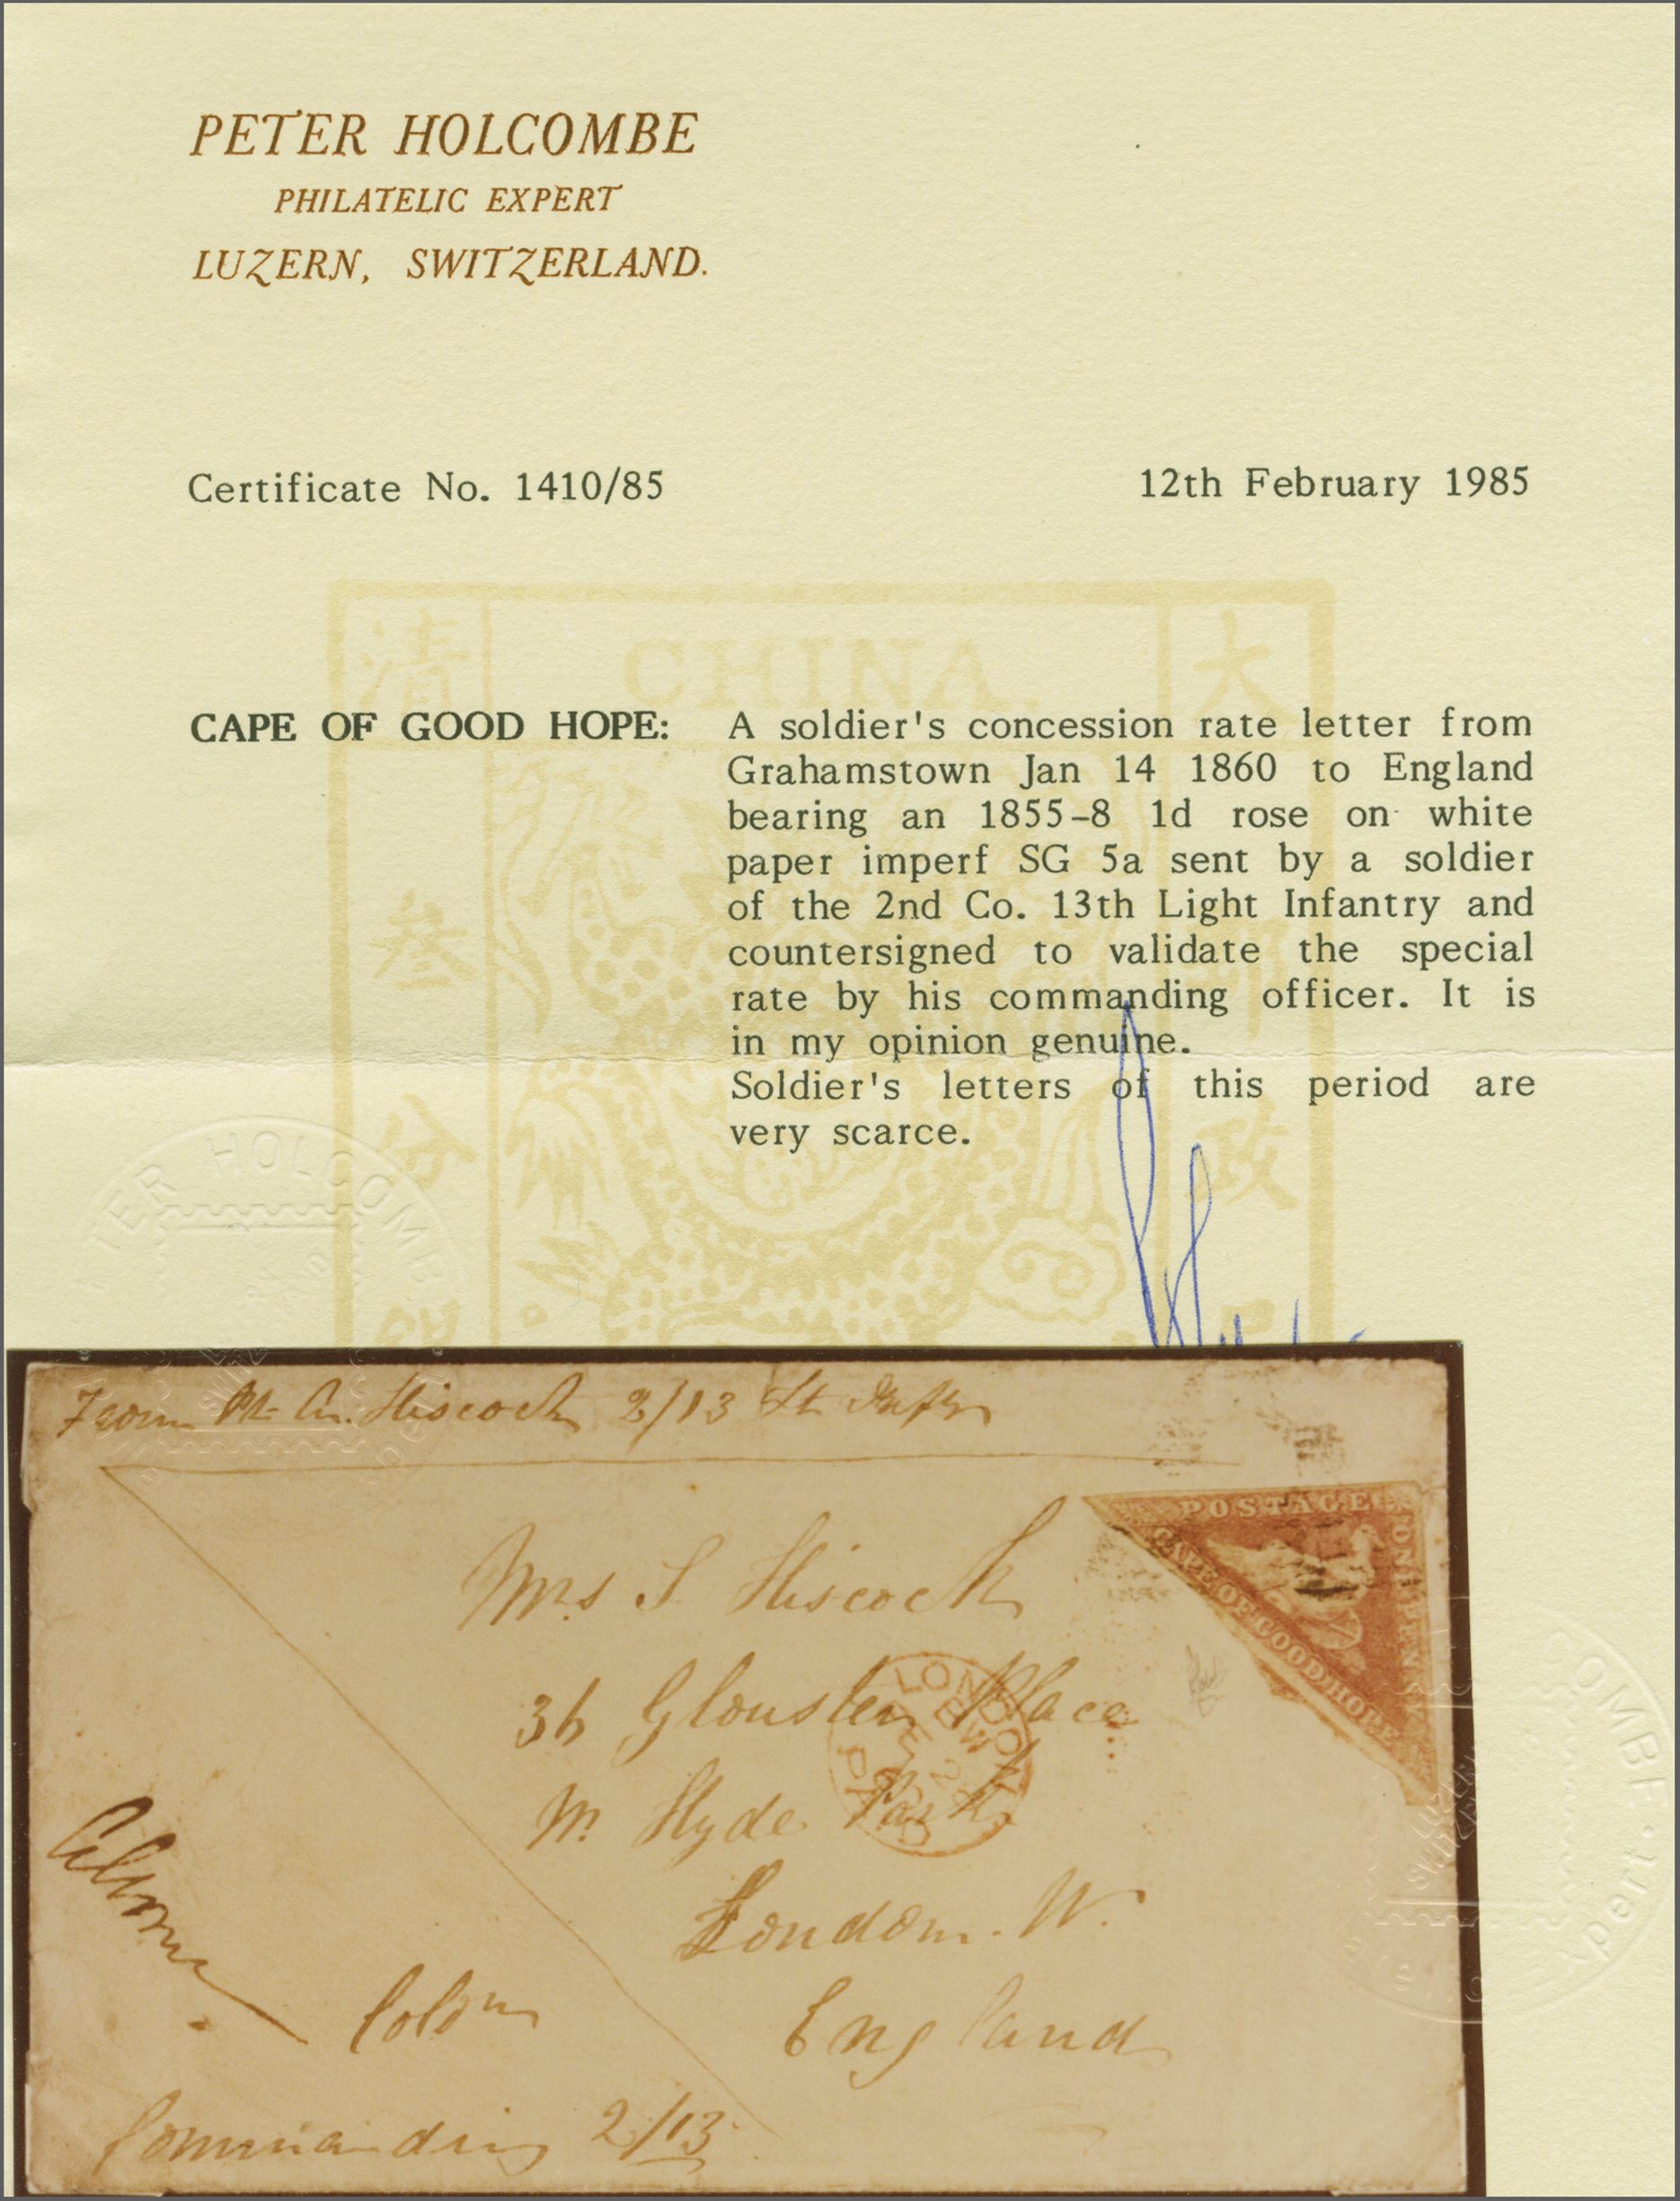 PETER HOLCOMBE
PHILATELIC EXPERT
LUZERN, SWITZERLAND.
Certificate No. 1410/85
12th February 1985
清 CHINA. 大
CAPE OF GOOD HOPE:
A soldier's concession rate letter from
Grahamstown Jan 14 1860 to England
bearing an 1855-8 1d rose on white
paper imperf SG 5a sent by a soldier
of the 2nd Co. 13th Light Infantry and
countersigned to validate the special
rate by his commanding officer. It is
in my opinion genuine.
Soldier's letters of this period are
very scarce.
叁
分
政
PETER HOLCOMBE
From Pte Hiscock 2/13 Lt Infty
POSTAGE
ONE PENNY
CAPE OF GOOD HOPE
Mrs S Hiscock
36 Glouster Place
Hyde Park
London. W.
England
LONDON
PAID
Coln
Commanding 2/13